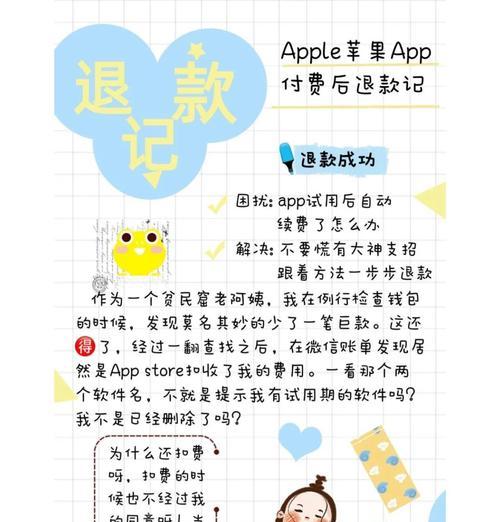 退款记
Apple苹果App
付费后退款记
退款成功
困扰: app试用后自动
续费了怎么办
解决: 不要慌有大神支招
跟着方法一步步退款
作为一个贫民窟老阿姨，我在例行检查钱包
的时候，发现莫名其妙的少了一笔巨款。这还
得了，经过一翻查找之后，在微信账单发现居
然是App store扣收了我的费用。一看那个两
个软件名，不就是提示我有试用期的软件吗?
我不是已经删除了吗?
为什么还扣费
呀，扣费的时
候也不经过我
的同意呀!